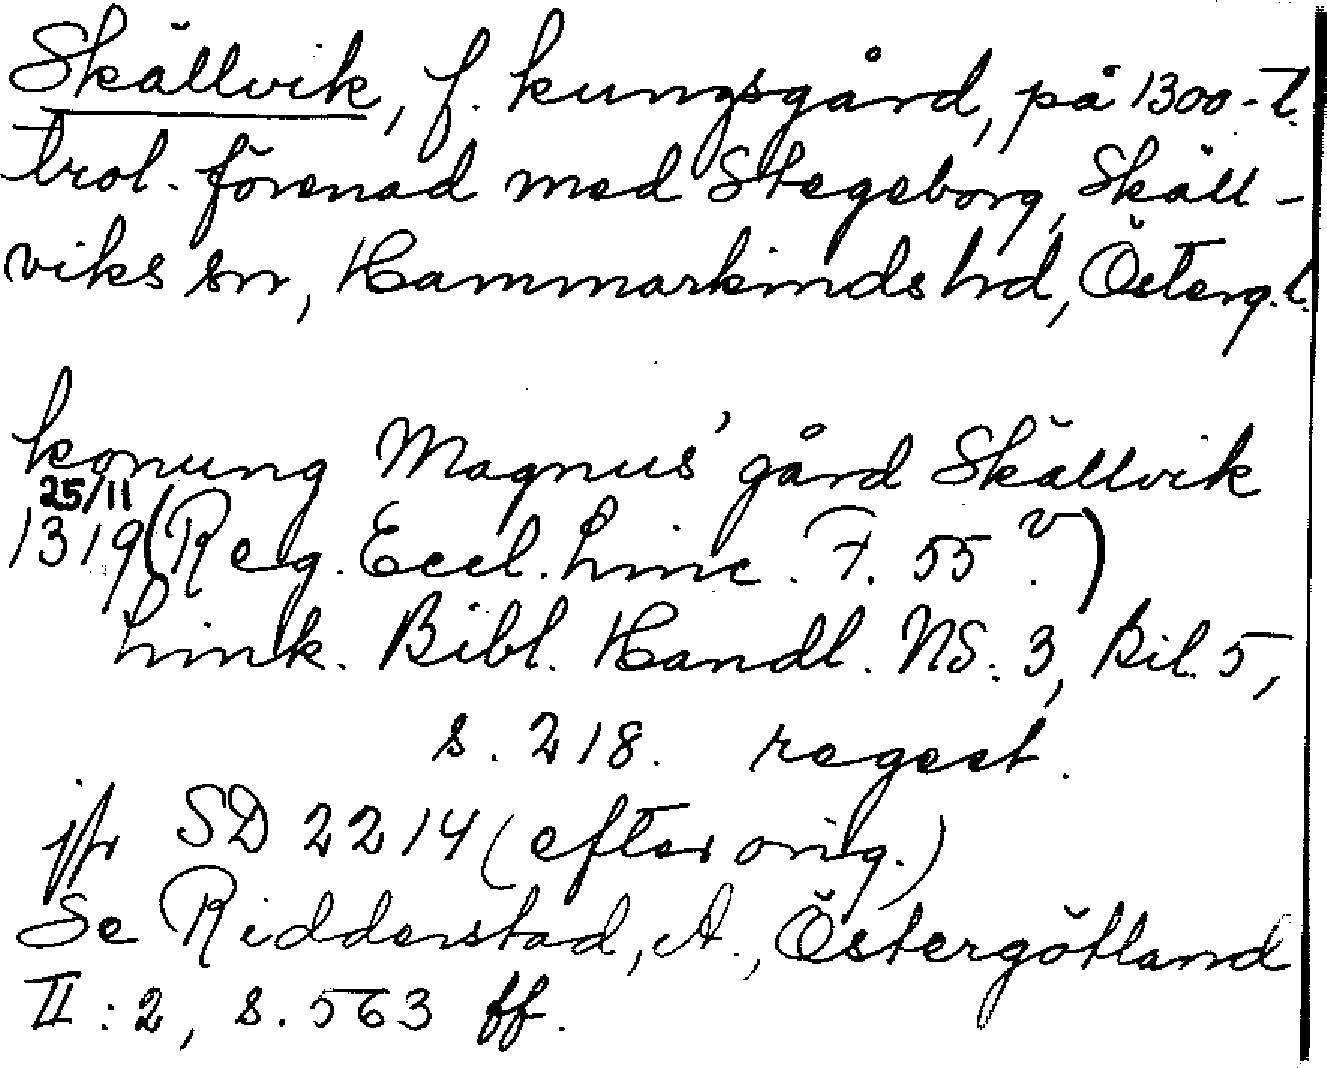 Skällvik, f. kungsgård, på 1300-t.
trol. förenad med Stegeborg, Skäll-
viks sn, Hammarkinds hd, Österg.l.
konung Magnus' gård Skällvik
25/11
1319 (Reg. Eccl. Linc. F. 55 v.)
Link. Bibl. Handl. NS. 3, Bil. 5,
s. 218. regest.
jfr SD 2214 (efter orig.)
Se Ridderstad, A., Östergötland
II:2, s. 563 ff.